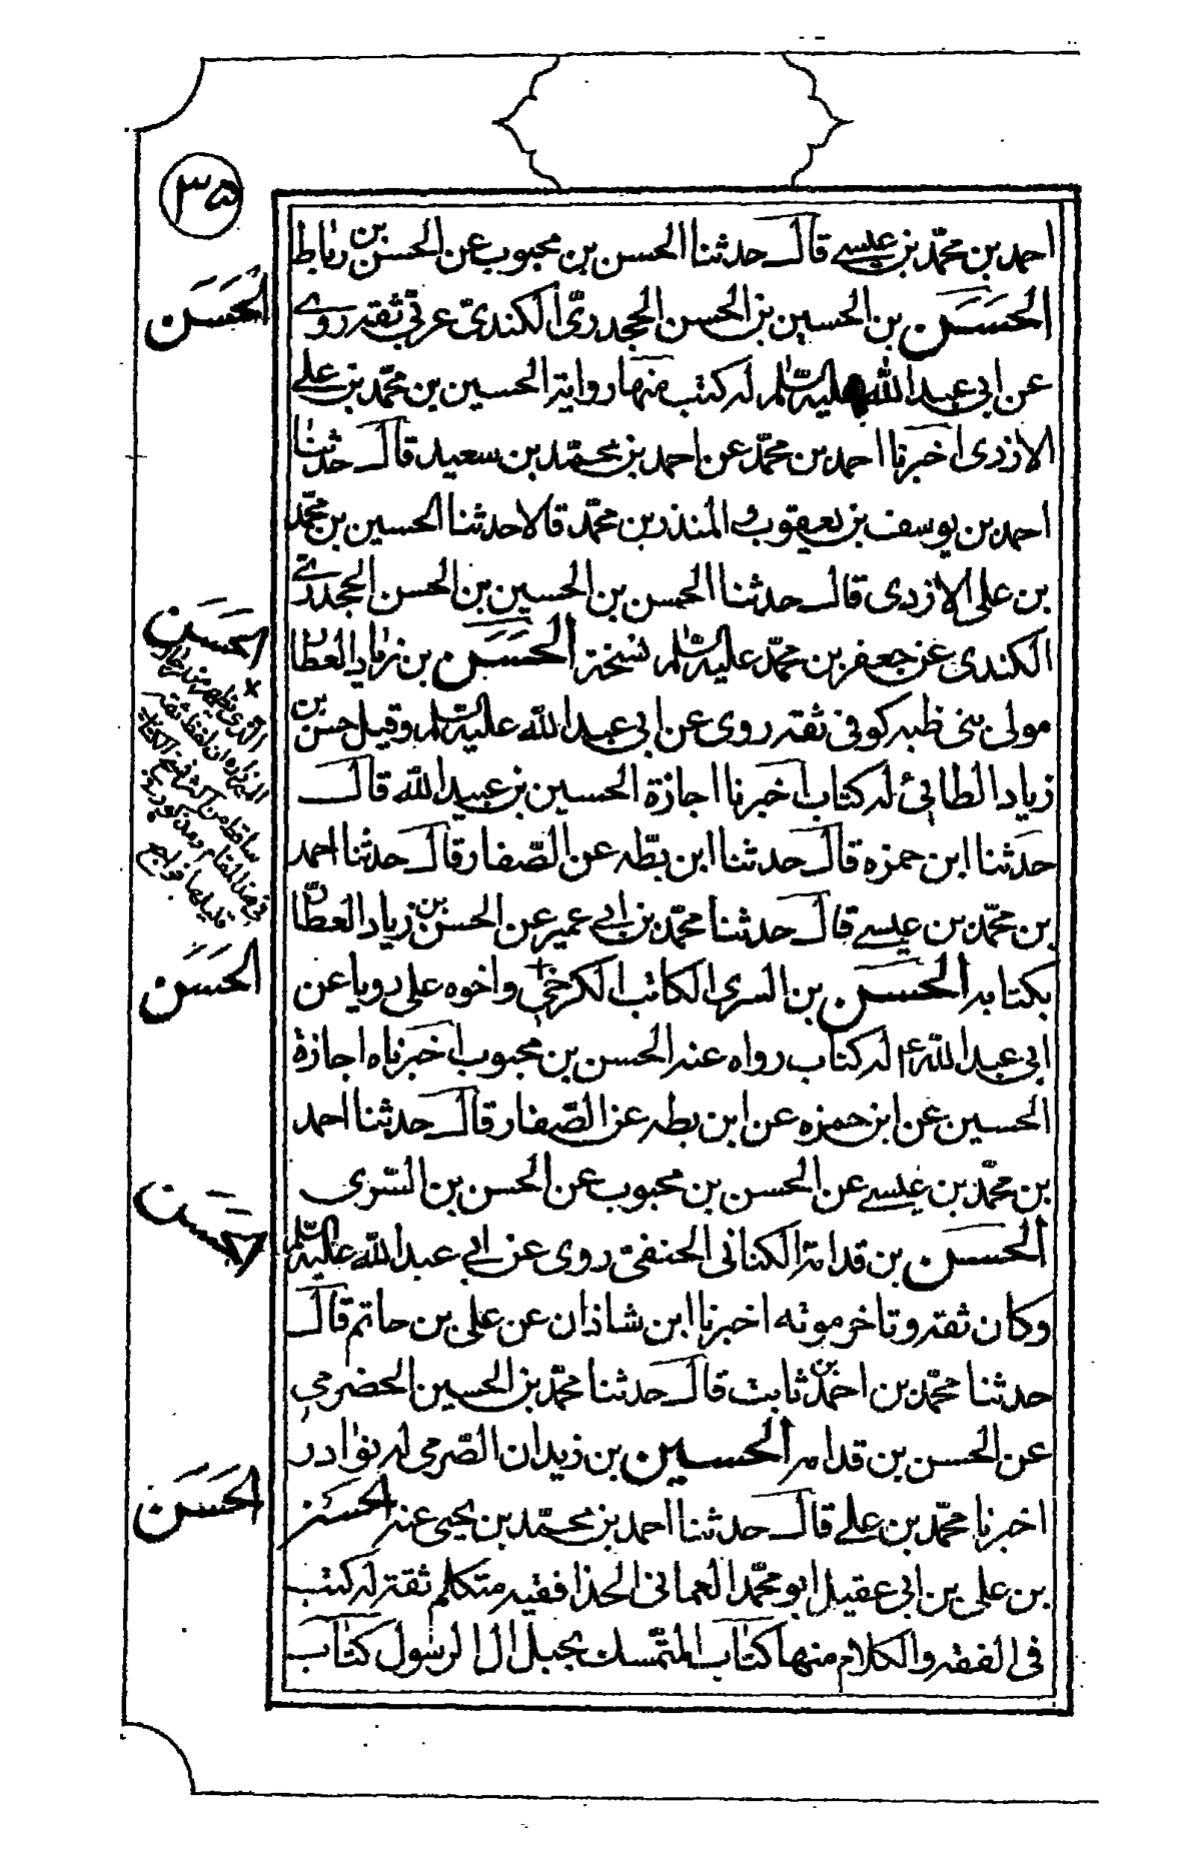 ٣٥
احمد بن محمّد بن عيسے قال حدثنا الحسن بن محبوب عن الحسن بن رباط
الحَسَن بن الحسين بن الحسن الجحدرىّ الكندىّ عربىّ ثقة روے
عن ابى عبدالله عليه السّلم له كتب منها رواية الحسين بن محمّد بن علے
الازدى اخبرنا احمد بن محمّد عن احمد بن محمّد بن سعيد قال حدثنا
احمد بن يوسف بن يعقوب و المنذر بن محمّد قالا حدثنا الحسين بن محمّد
بن على الازدى قال حدثنا الحسن بن الحسين بن الحسن الجحدرے
الكندى عن جعفر بن محمّد عليه السّلم نسخة الحَسَن بن زياد العطار
مولى بنى ظبه كوفى ثقة روى عن ابى عبدالله عليه السّلم وقيل حسن بن
زياد الطائىّ له كتاب اخبرنا اجازة الحسين بن عبيدالله قال
حدثنا ابن حمزه قال حدثنا ابن بطّه عن الصّفار قال حدثنا احمد
بن محمّد بن عيسے قال حدثنا محمّد بن ابے عمير عن الحسن بن زياد العطار
بكتابه الحَسَن بن السرى الكاتب الكرخىّ واخوه على رويا عن
ابى عبدالله ع له كتاب رواه عنه الحسن بن محبوب اخبرناه اجازة
الحسين عن ابن حمزه عن ابن بطه عن الصّفار قال حدثنا احمد
بن محمّد بن عيسے عن الحسن بن محبوب عن الحسن بن السّرى
الحَسَن بن قدامة الكنانى الحنفىّ روى عن ابے عبدالله عليه السّلم
وكان ثقة و تاخر موته اخبرنا ابن شاذان عن على بن حاتم قال
حدثنا محمّد بن احمد بن ثابت قال حدثنا محمّد بن الحسين الحضرمى
عن الحسن بن قدامه الحسين بن زيدان الصّرمى له نوادر
اخبرنا محمّد بن علے قال حدثنا احمد بن محمّد بن يحيى عنه الحَسَن
بن على بن ابى عقيل ابو محمّد العمانى الحذا فقيه متكلم ثقة له كتب
فى الفقه والكلام منها كتاب المتمّسك بحبل ال الرسول كتاب
الحَسَن
الحَسَن
الحَسَن
الحَسَن
الحَسَن